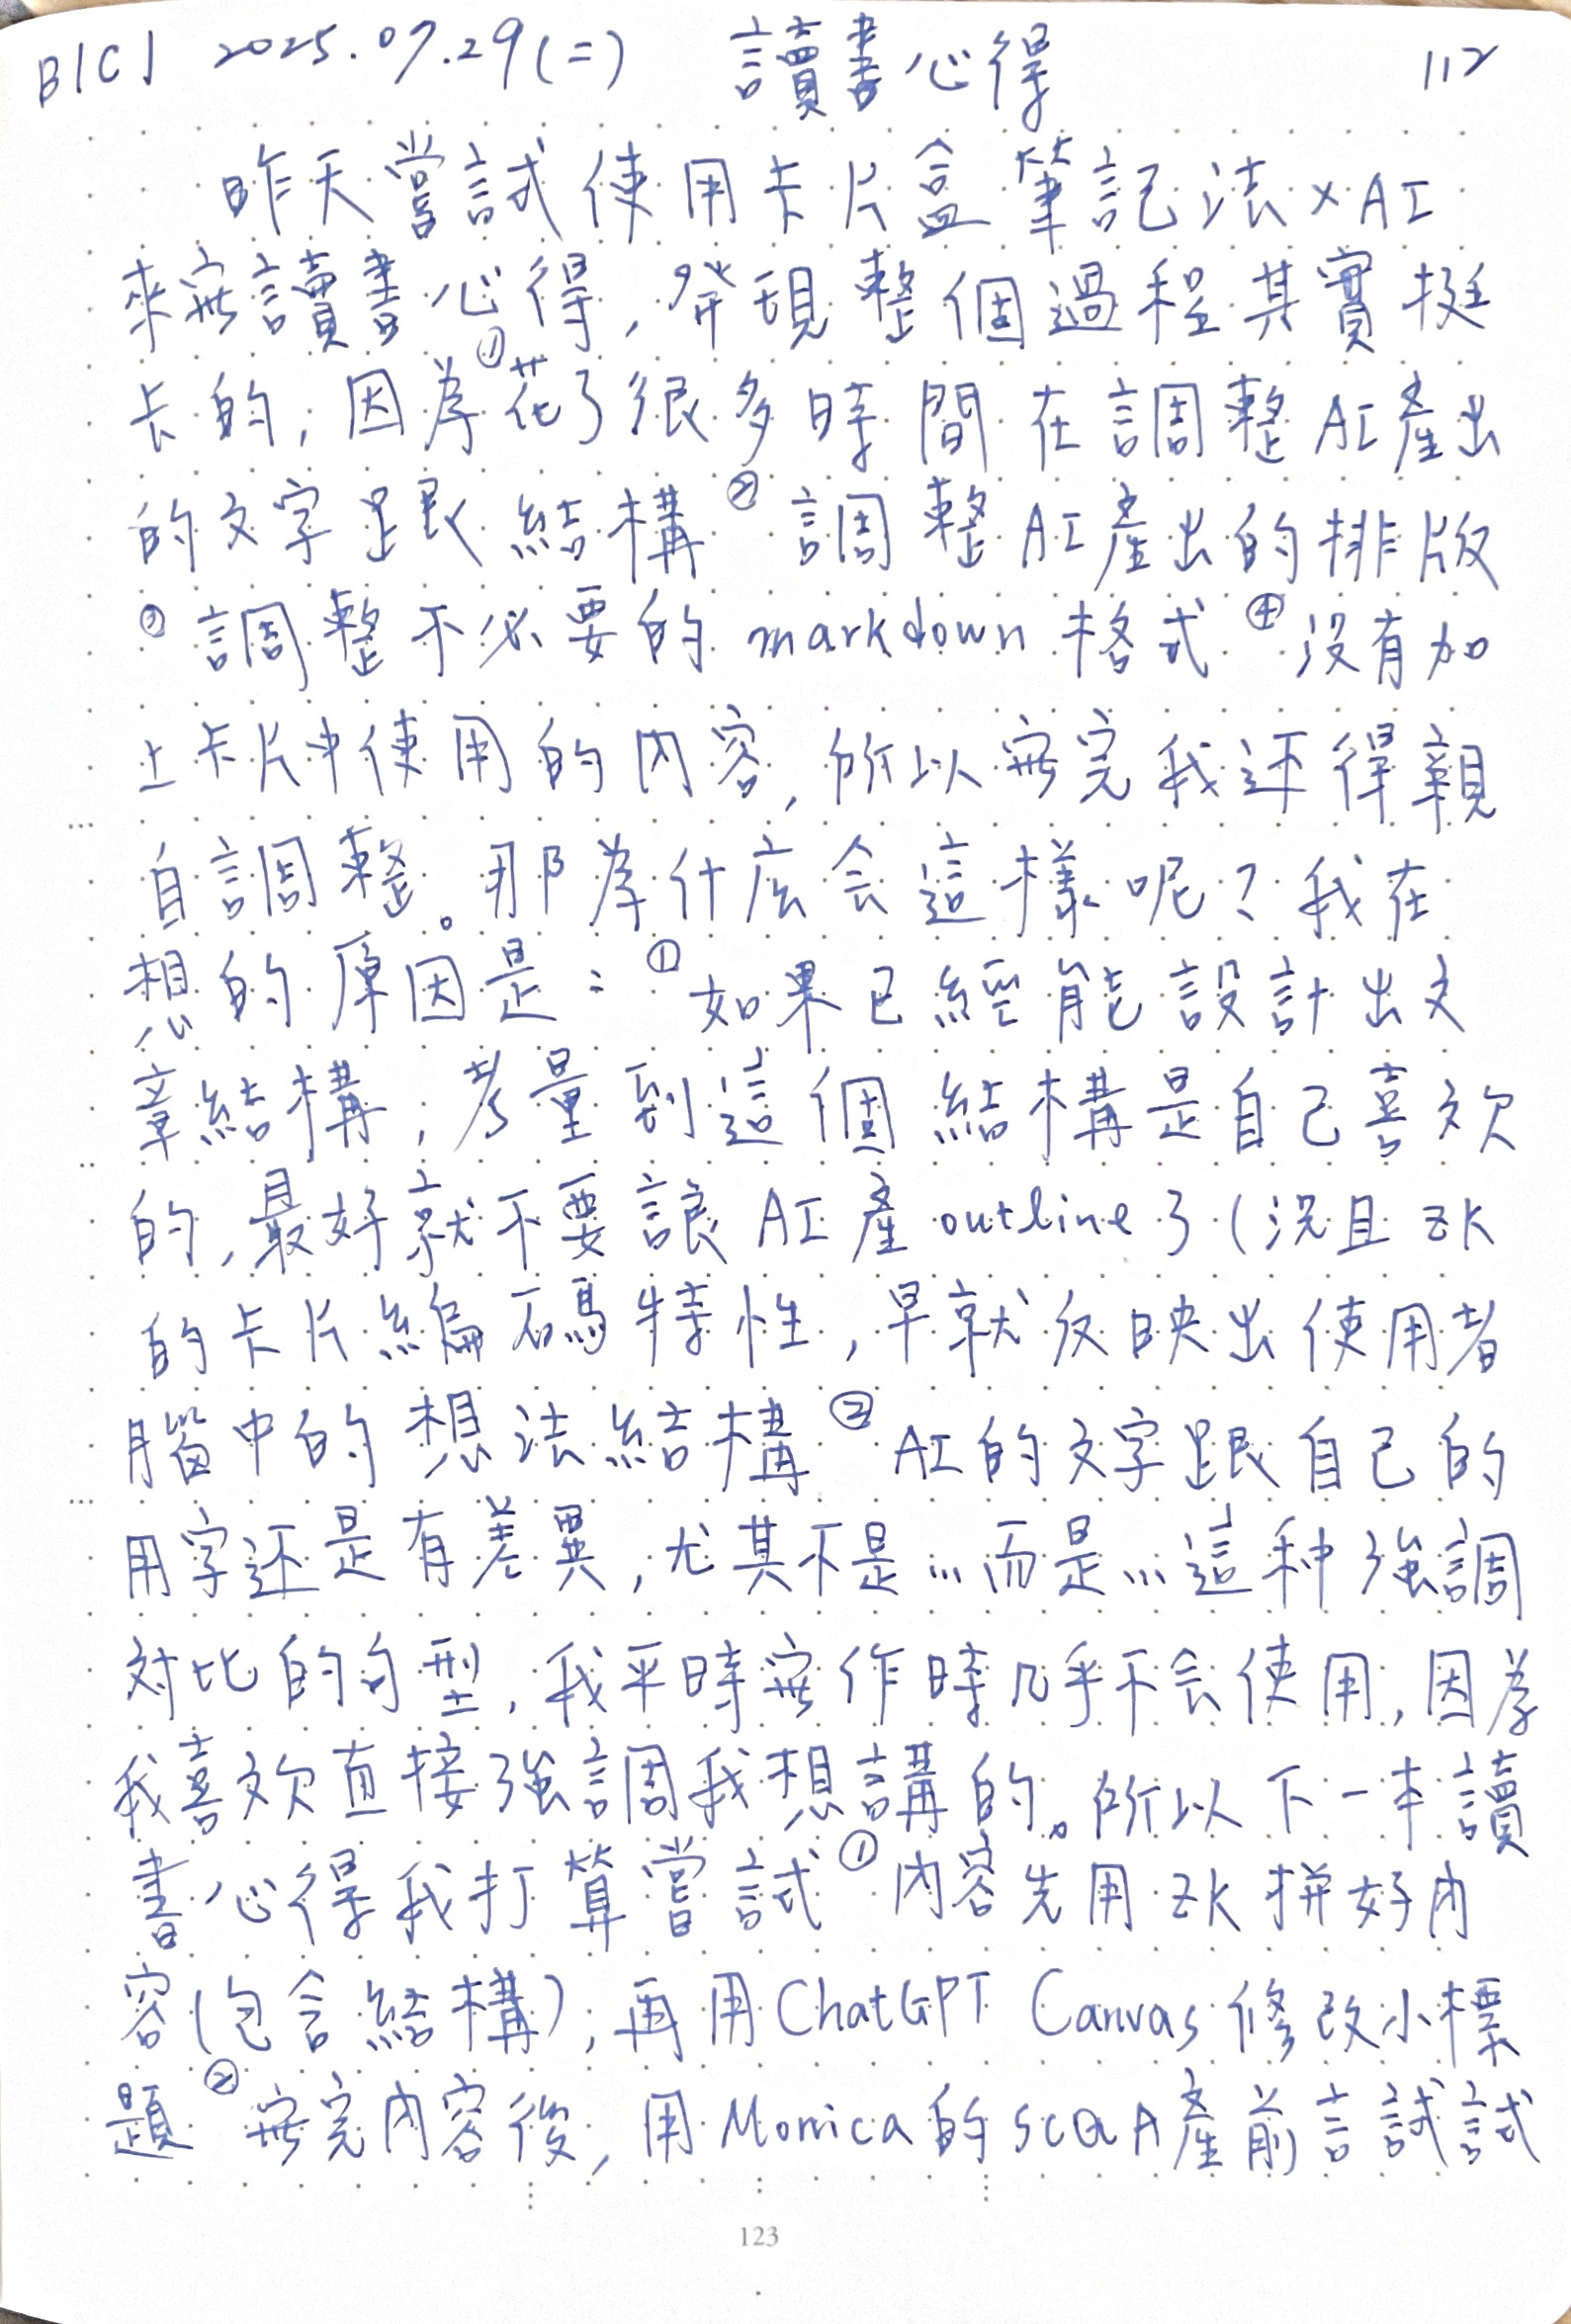 B1C1 2025.07.29(二) 讀書心得 112
昨天嘗試使用卡片盒筆記法×AI
來寫讀書心得,發現整個過程其實挺
卡的,因為①花了很多時間在調整AI產出
的文字跟結構②調整AI產出的排版
③調整不必要的markdown格式④沒有加
上卡片中使用的內容,所以寫完我还得親
自調整。那為什么会這樣呢?我在
想的原因是:①如果已經能設計出文
章結構,考量到這個結構是自己喜欢
的,最好就不要讓AI產outline了(況且ZK
的卡片編碼特性,早就反映出使用者
腦中的想法結構②AI的文字跟自己的
用字还是有差異,尤其不是…而是…這种強調
对比的句型,我平時寫作時几乎不会使用,因為
我喜欢直接強調我想講的。所以下一本讀
書心得我打算嘗試①內容先用ZK拼好內
容(包含結構),再用ChatGPT Canvas修改小標
題②寫完內容後,用Monica的SCQA產前言試試
123